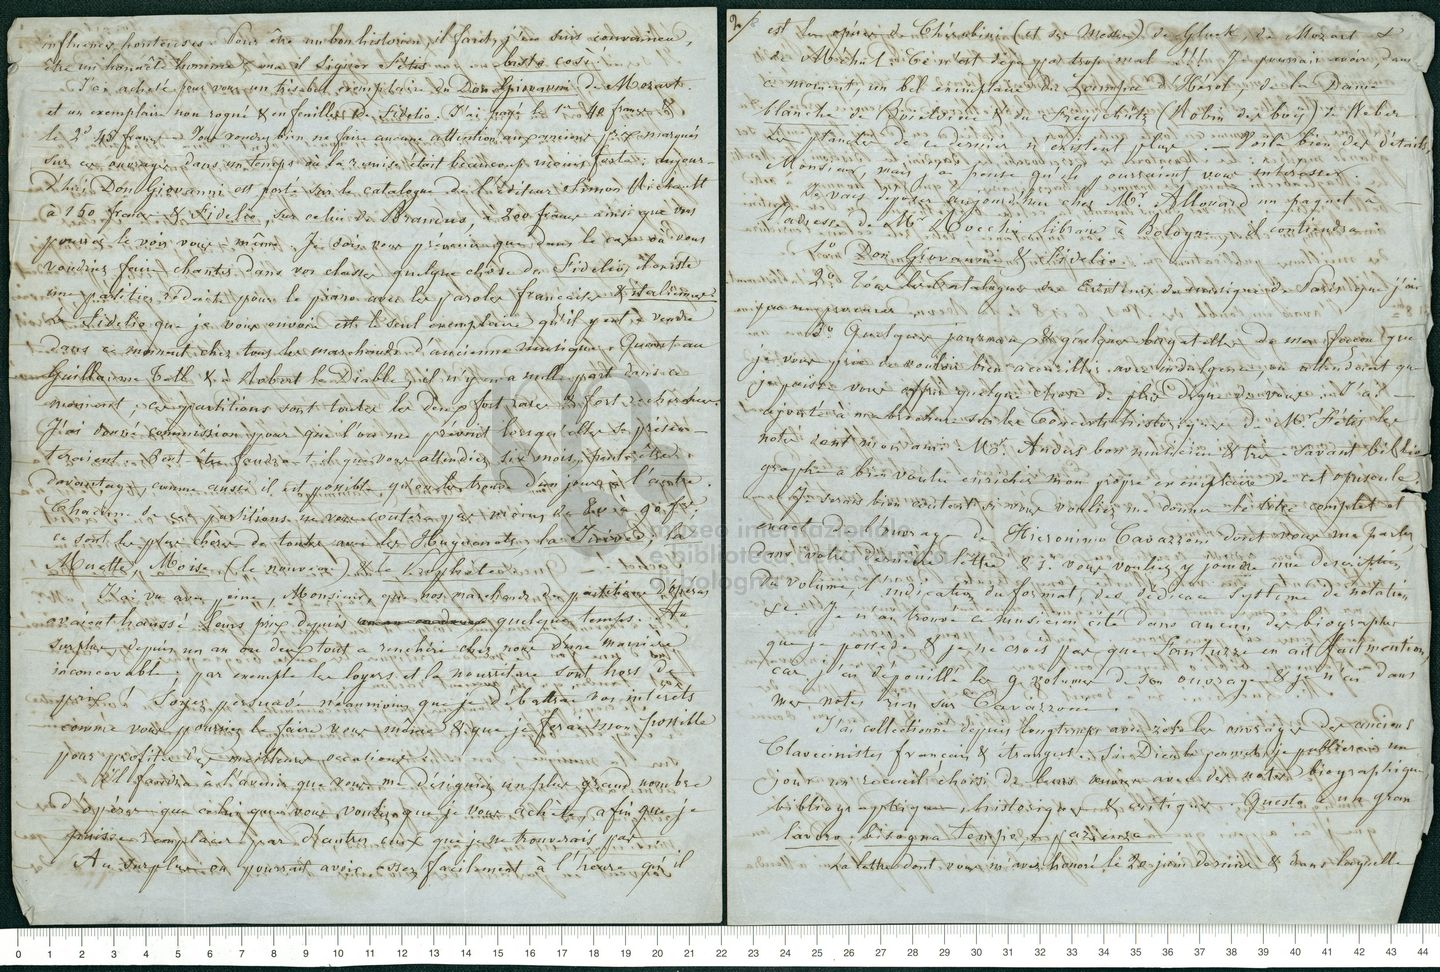 influences honteuses. Pour être un bon historien, il faut, j'en suis convaincu,
être un honnête homme & ma il Signor Fétis basta cosi.
J'ai acheté pour vous un très bel exemplaire du Don Giovanni de Mozart
et un exemplaire non rogné & en feuilles de Fidelio. J'ai payé le 1er 40 francs &
le 2d 45 francs. Vous voudrez bien ne faire aucune attention aux anciens prix marqués
sur ces ouvrages dans un temps où la remise était beaucoup moins forte. aujour-
d'hui, Don Giovanni est porté sur le catalogue de l'Editeur Simon Richault
à 150 francs & Fidelio, sur celui de Brandus, à 200 francs ainsi que vous
pourrez le voir vous même. Je dois vous prévenir que dans le cas où vous
voudriez faire chanter dans vos classes quelque chose de Fidelio, il existe
une partition réduite pour le piano avec les paroles françaises & italiennes.
Le Fidelio que je vous envoie est le seul exemplaire qu'il y ait à vendre
dans ce moment chez tous les marchands d'ancienne musique. Quant au
Guillaume Tell & à Robert le Diable, il n'y en a nulle part dans ce
moment; ces partitions sont toutes les deux fort rares & fort recherchées.
J'ai donné commission pour que l'on me prévînt lorsqu'elles se présen-
teraient. Peut être faudra-t-il que vous attendiez six mois, peut être
davantage, comme aussi il est possible qu'on les trouve d'un jour à l'autre.
Chacune de ces partitions ne vous coûtera pas moins de 80 à 90 fr.
ce sont les plus chères de toutes avec les Huguenots, la Juive, la
Muette, Moïse (le nouveau) & le Prophète.
J'ai vu avec peine, Monsieur, que nos marchands de partitions d'opéras
avaient haussé leurs prix depuis quelque temps. Au
surplus, depuis un an ou deux tout a renchéri chez nous d'une manière
inconcevable; par exemple les loyers et la nourriture sont hors de
prix! Soyez persuadé néanmoins que je débattrai vos intérêts
comme vous pourriez le faire vous même & que je ferai mon possible
pour profiter des meilleures occasions.
Il faudra à l'avenir que vous me désigniez un plus grand nombre
d'opéras que celui que vous voudrez que je vous achète, afin que je
puisse remplacer par d'autres ceux que je ne trouverais pas.
Au surplus on pourrait avoir assez facilement à l'heure qu'il
2
est les opéras de Chérubini (et ses Messes) de Gluck, de Mozart &
de Méhul. Ce n'est déjà pas trop mal!!! Je pourrais avoir dans
ce moment un bel exemplaire du Zampa d'Hérold de la Dame
blanche de Boieldieu & du Freyschütz (Robin des bois) de Weber
les planches de ce dernier n'existent plus. — Voilà bien des détails,
Monsieur, mais je pense qu'ils pourraient vous intéresser.
Je vais déposer aujourd'hui chez Mr. Allouard un paquet à
l'adresse de Mr. Rocchi libraire à Bologne; il contiendra
1o. Don Giovanni & Fidelio.
2o. Tous les Catalogues des Editeurs de musique de Paris que j'ai
pu me procurer.
3o. Quelques journaux & quelques bagatelles de ma façon que
je vous prie de vouloir bien accueillir avec indulgence, en attendant que
je puisse vous offrir quelque chose de plus digne de vous. J'ai
ajouté à ma brochure sur les Concerts historiques de Mr. Fétis les
notes dont mon ami Mr. Anders bon musicien & très savant biblio-
graphe a bien voulu enrichir mon propre exemplaire de cet opuscule.
Je serais bien content si vous vouliez me donner le titre complet et
exact de l'ouvrage de Hieronimo Cavazzoni dont vous me parlez
dans votre dernière lettre & si vous vouliez y joindre une description
du volume, l'indication du format, des dédicaces, système de notation
&c. Je n'ai trouvé ce musicien cité dans aucun des biographes
que je possède & je ne crois pas que Fantuzzi en ait fait mention,
car j'ai dépouillé les 9 volumes de son ouvrage & je n'ai dans
mes notes rien sur Cavazzoni.
J'ai collectionné depuis longtemps avec zèle les ouvrages des anciens
Clavecinistes français & étrangers. Si Dieu le permet, je publierai un
jour un recueil choisi de leurs œuvres avec des notes biographiques,
bibliographiques, historiques & critiques. Questo è un gran
lavoro. Bisogna tempo & pazienza.
La lettre dont vous m'avez honoré le 20 juin dernier & dans laquelle
museo internazionale
e biblioteca della musica
di bologna
0 1 2 3 4 5 6 7 8 9 10 11 12 13 14 15 16 17 18 19 20 21 22 23 24 25 26 27 28 29 30 31 32 33 34 35 36 37 38 39 40 41 42 43 44